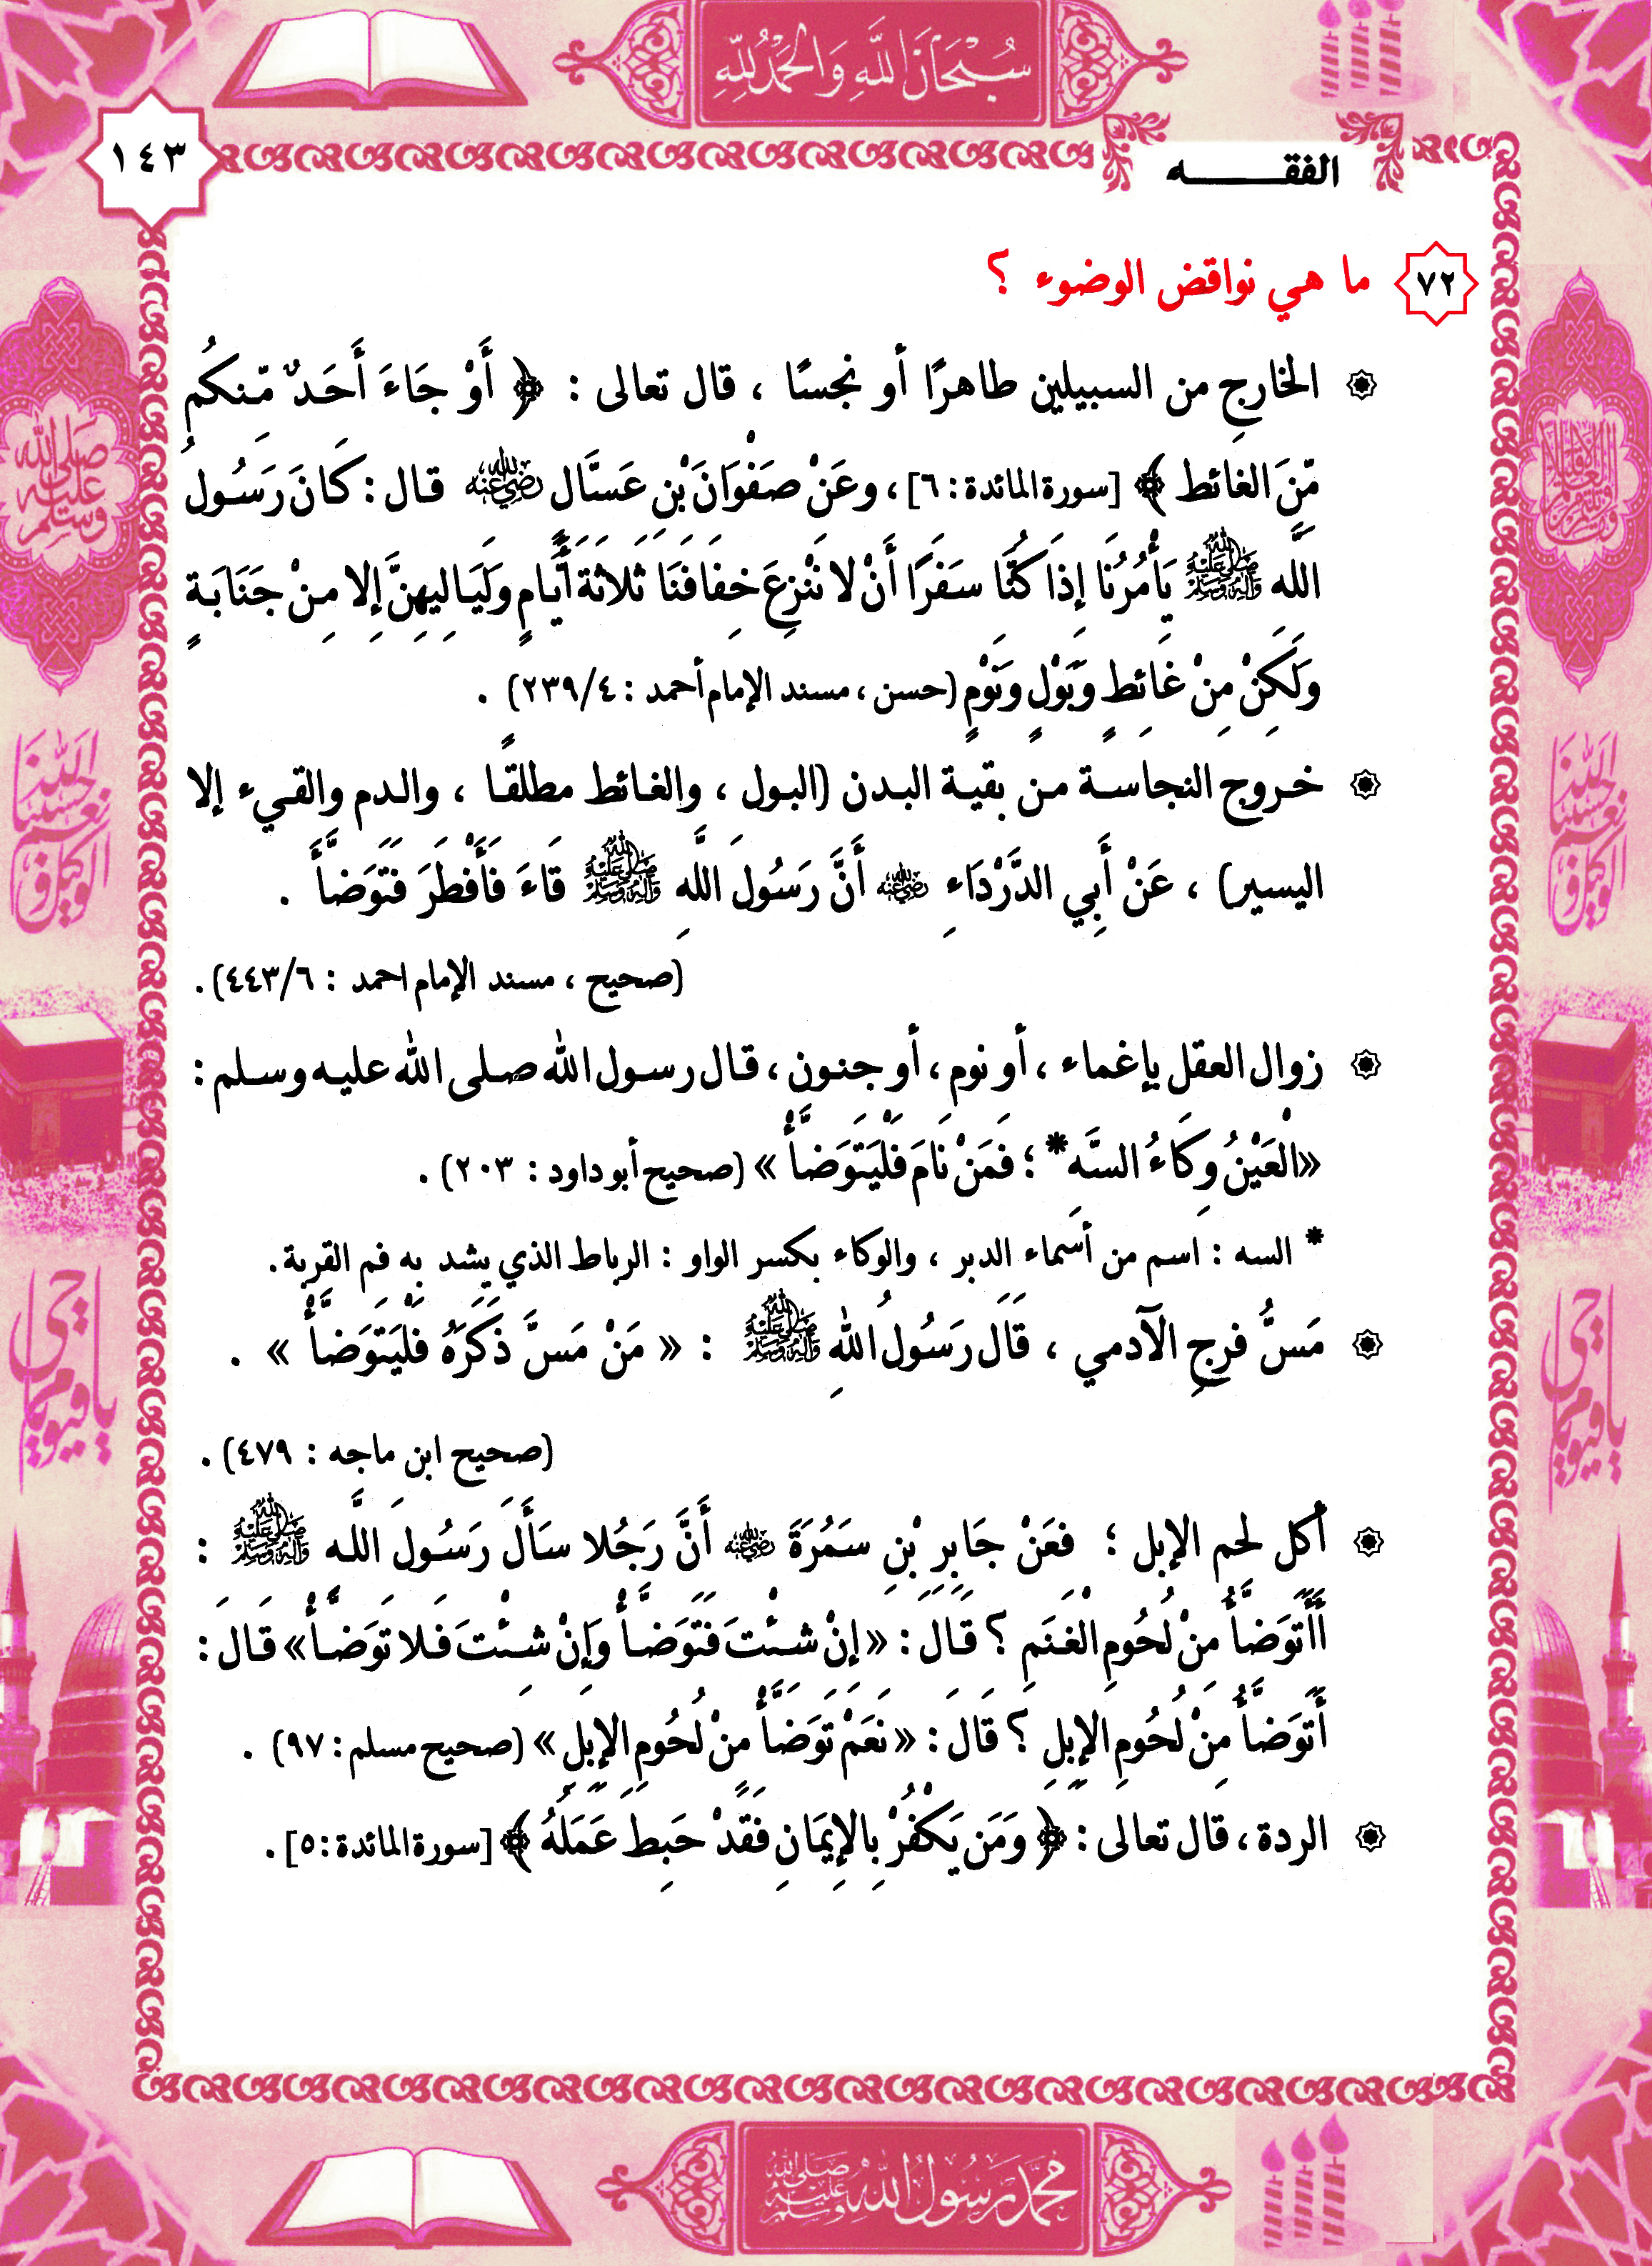 سُبْحَانَ اللَّهِ وَالْحَمْدُ لِلَّهِ
١٤٣
الفقـــــــه
٧٢ ما هي نواقض الوضوء ؟
الخارجِ من السبيلين طاهرًا أو نجسًا ، قال تعالى : ﴿ أَوْ جَاءَ أَحَدٌ مِّنكُم
مِّنَ الغَائط ﴾ [سورة المائدة : ٦] ، وعَنْ صَفْوَانَ بْنِ عَسَّال رضي الله عنه قال : كَانَ رَسُولُ
اللَّه ﷺ يَأْمُرُنَا إِذَا كُنَّا سَفَرًا أَنْ لا نَنْزِعَ خِفَافَنَا ثَلاثَةَ أَيَّامٍ وَلَيَالِيهِنَّ إِلا مِنْ جَنَابَةٍ
وَلَكِنْ مِنْ غَائِطٍ وَبَوْلٍ وَنَوْمٍ (حسن ، مسند الإمام أحمد : ٢٣٩/٤) .
خروج النجاسة من بقية البدن (البول ، والغائط مطلقًا ، والدم والقيء إلا
اليسير) ، عَنْ أَبِي الدَّرْدَاءِ رضي الله عنه أَنَّ رَسُولَ اللَّهِ ﷺ قَاءَ فَأَفْطَرَ فَتَوَضَّأَ .
(صحيح ، مسند الإمام احمد : ٤٤٣/٦) .
زوال العقل بإغماء ، أو نوم ، أو جنون ، قال رسول الله صلى الله عليه وسلم :
«الْعَيْنُ وِكَاءُ السَّه* ؛ فَمَنْ نَامَ فَلْيَتَوَضَّأْ » (صحيح أبو داود : ٢٠٣) .
* السه : اسم من أسماء الدبر ، والوكاء بكسر الواو : الرباط الذي يشد به فم القربة .
مَسُّ فرجِ الآدمي ، قَالَ رَسُولُ اللهِ ﷺ : « مَنْ مَسَّ ذَكَرَهُ فَلْيَتَوَضَّأْ » .
(صحيح ابن ماجه : ٤٧٩) .
أكل لحم الإبل ؛ فعَنْ جَابِرِ بْنِ سَمُرَةَ رضي الله عنه أَنَّ رَجُلا سَأَلَ رَسُولَ اللَّه ﷺ :
أَأَتَوَضَّأُ مِنْ لُحُومِ الْغَنَمِ ؟ قَالَ : « إِنْ شِئْتَ فَتَوَضَّأْ وَإِنْ شِئْتَ فَلا تَوَضَّأْ» قَالَ :
أَتَوَضَّأُ مِنْ لُحُومِ الإِبِلِ ؟ قَالَ : « نَعَمْ تَوَضَّأْ مِنْ لُحُومِ الإِبِلِ » (صحيح مسلم : ٩٧) .
الردة ، قال تعالى : ﴿ وَمَن يَكْفُرْ بِالإِيمَانِ فَقَدْ حَبِطَ عَمَلُهُ ﴾ [سورة المائدة : ٥] .
صلى الله عليه وسلم
حسبنا الله ونعم الوكيل
يا حي يا قيوم
محمد رسول الله صلى الله عليه وسلم